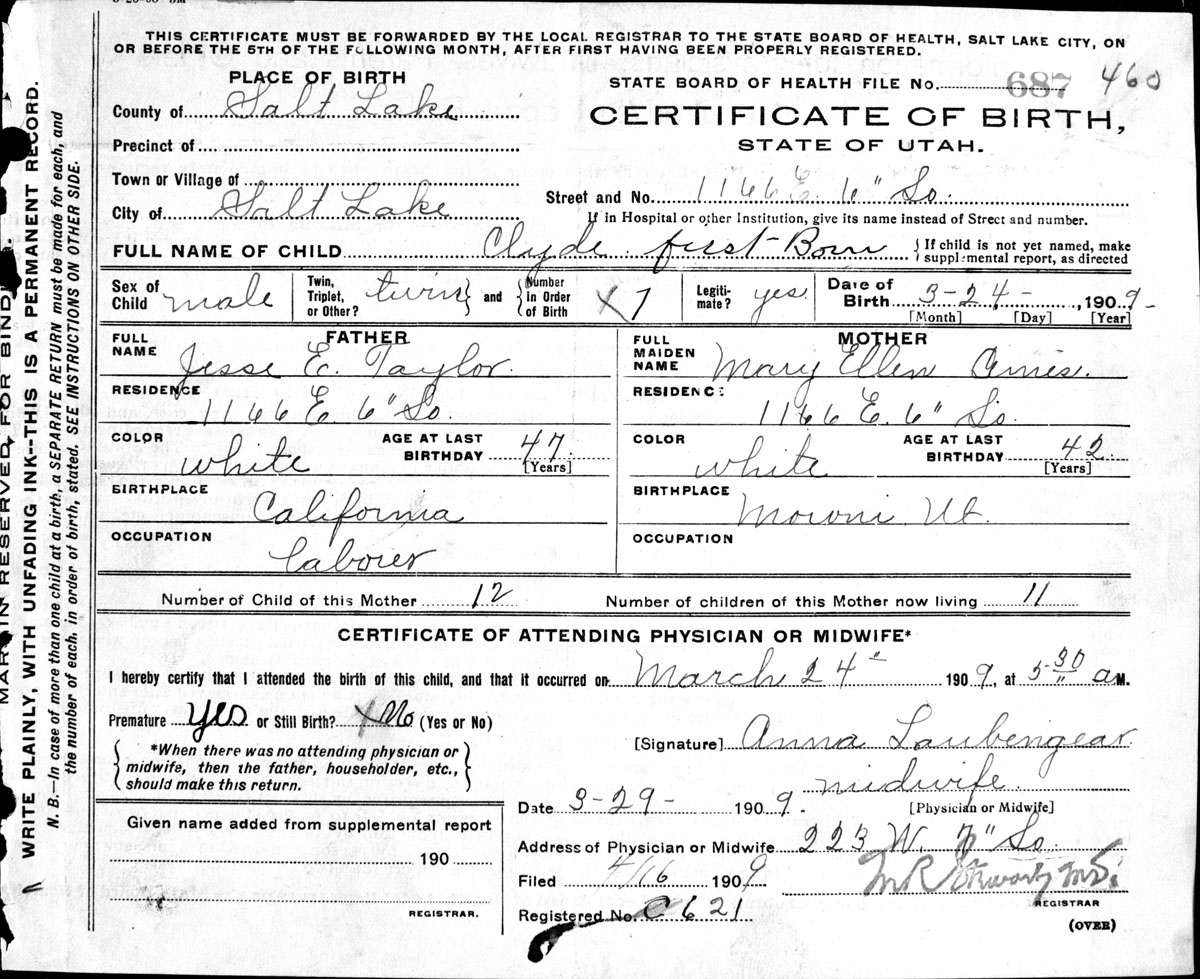 THIS CERTIFICATE MUST BE FORWARDED BY THE LOCAL REGISTRAR TO THE STATE BOARD OF HEALTH, SALT LAKE CITY, ON
OR BEFORE THE 5TH OF THE FOLLOWING MONTH, AFTER FIRST HAVING BEEN PROPERLY REGISTERED.
PLACE OF BIRTH
STATE BOARD OF HEALTH FILE No. 687 460
County of Salt Lake
CERTIFICATE OF BIRTH,
Precinct of
STATE OF UTAH.
Town or Village of
Street and No. 1166 E. 6" So.
City of Salt Lake
If in Hospital or other Institution, give its name instead of Street and number.
FULL NAME OF CHILD Clyde first-Born { If child is not yet named, make
supplemental report, as directed
Sex of Child male Twin, Triplet, or Other? twin } and { Number in Order of Birth X 1 Legiti-mate? yes Date of Birth 3-24- , 1909-
[Month] [Day] [Year]
FATHER
FULL NAME Jesse E. Taylor.
RESIDENCE 1166 E. 6" So
COLOR white AGE AT LAST BIRTHDAY 47 [Years]
BIRTHPLACE California
OCCUPATION laborer
MOTHER
FULL MAIDEN NAME Mary Ellen Ames.
RESIDENCE 1166 E. 6" So.
COLOR white AGE AT LAST BIRTHDAY 42 [Years]
BIRTHPLACE Moroni Ut.
OCCUPATION
Number of Child of this Mother 12 Number of children of this Mother now living 11
CERTIFICATE OF ATTENDING PHYSICIAN OR MIDWIFE*
I hereby certify that I attended the birth of this child, and that it occurred on March 24" 1909, at 5-30 a M.
Premature Yes or Still Birth? X No (Yes or No)
*When there was no attending physician or
midwife, then the father, householder, etc.,
should make this return.
[Signature] Anna Laubengear
midwife.
Date 3-29- 1909. [Physician or Midwife]
Given name added from supplemental report
190
REGISTRAR.
Address of Physician or Midwife 223 W. 7" So.
Filed 4/16 1909
REGISTRAR
Registered No. C 621
(OVER)
MARGIN RESERVED FOR BINDING.
WRITE PLAINLY, WITH UNFADING INK--THIS IS A PERMANENT RECORD.
N. B.—In case of more than one child at a birth, a SEPARATE RETURN must be made for each, and
the number of each, in order of birth, stated. SEE INSTRUCTIONS ON OTHER SIDE.